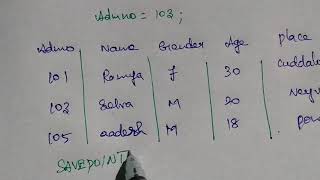 Admno = 103;
Admno Name Gender Age place
101 Ramya F 30 Cuddalo
103 Selva M 20 Neyv
105 aadesh M 18
SAVEPOINT